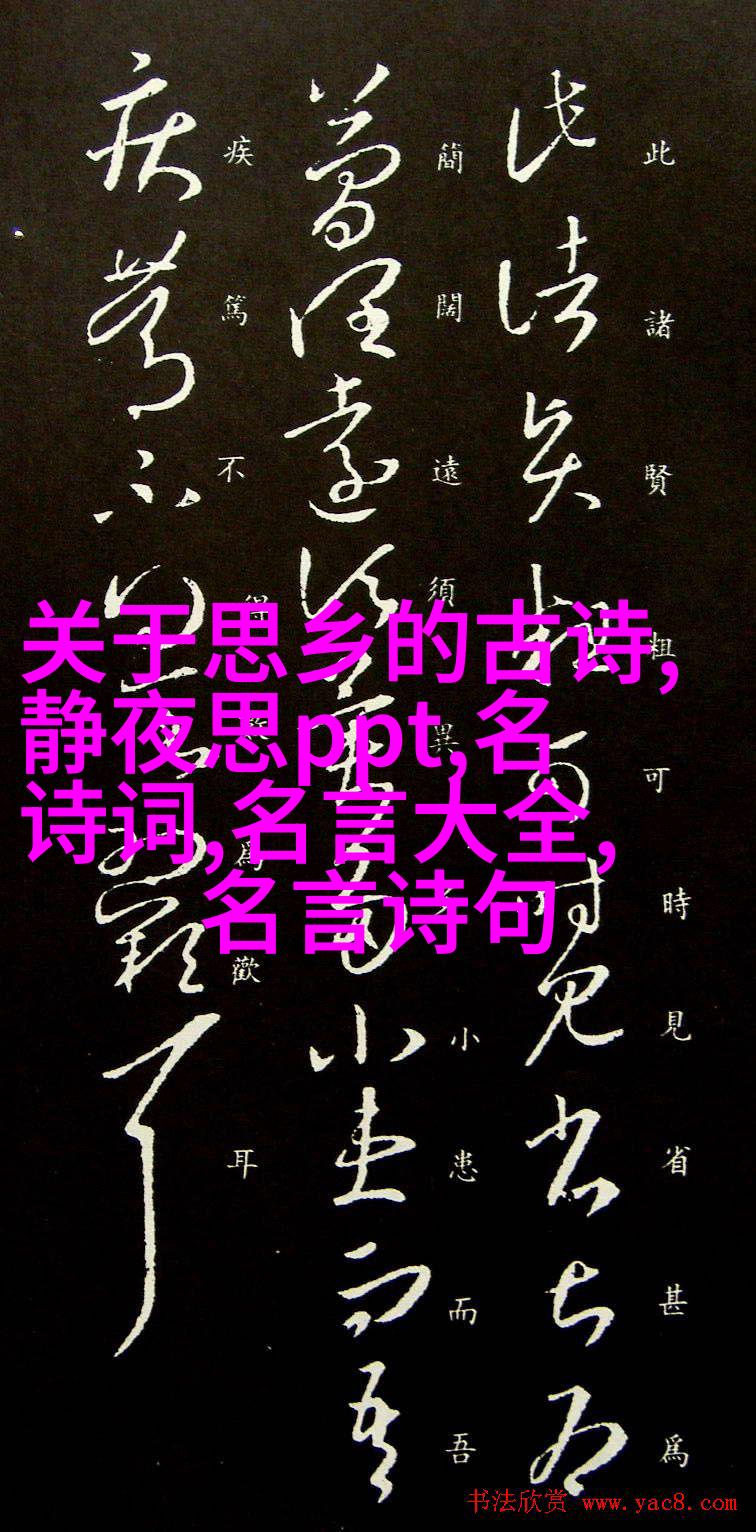 此諸賢粗可時見省甚為
簡闊遠須異小患而吾
疾篤不得為歡耳
关于思乡的古诗,
静夜思ppt,名
诗词,名言大全,
名言诗句
书法欣赏 www.yac8.com